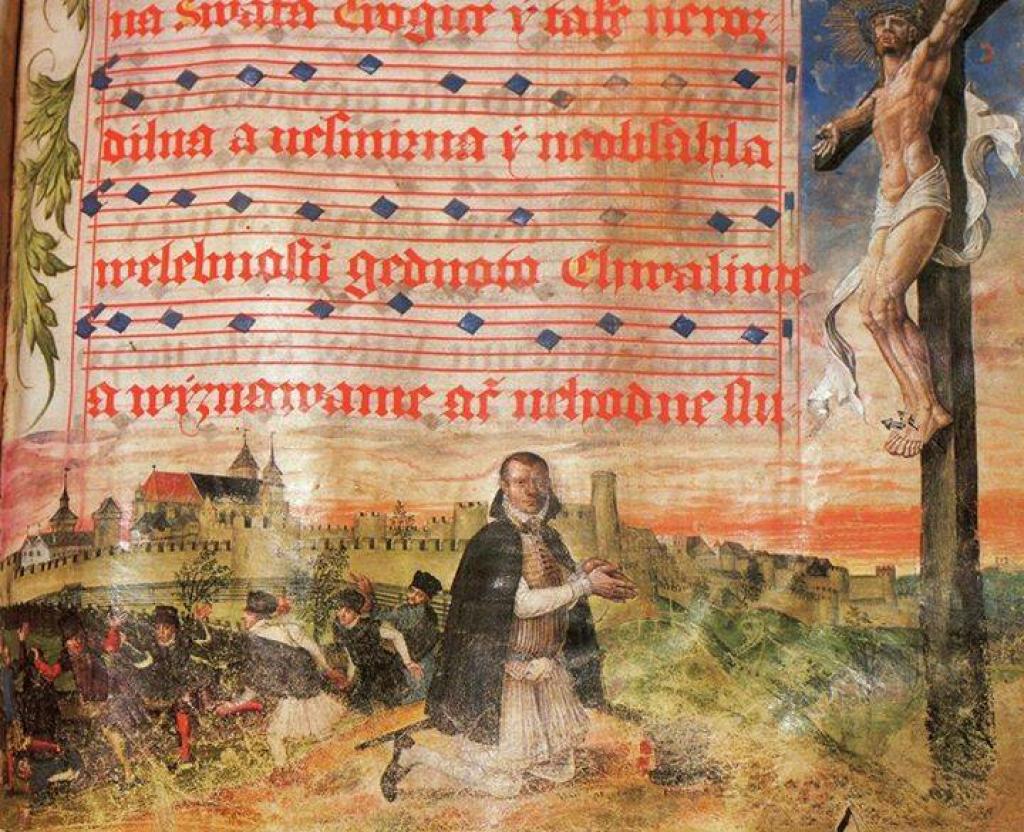 na Swata Trogice ẏ take neroz
dilna a neſmirna ẏ neobſahla
welebnoſti gednoto Chwalime
a wẏznawame ač nehodne ſlu